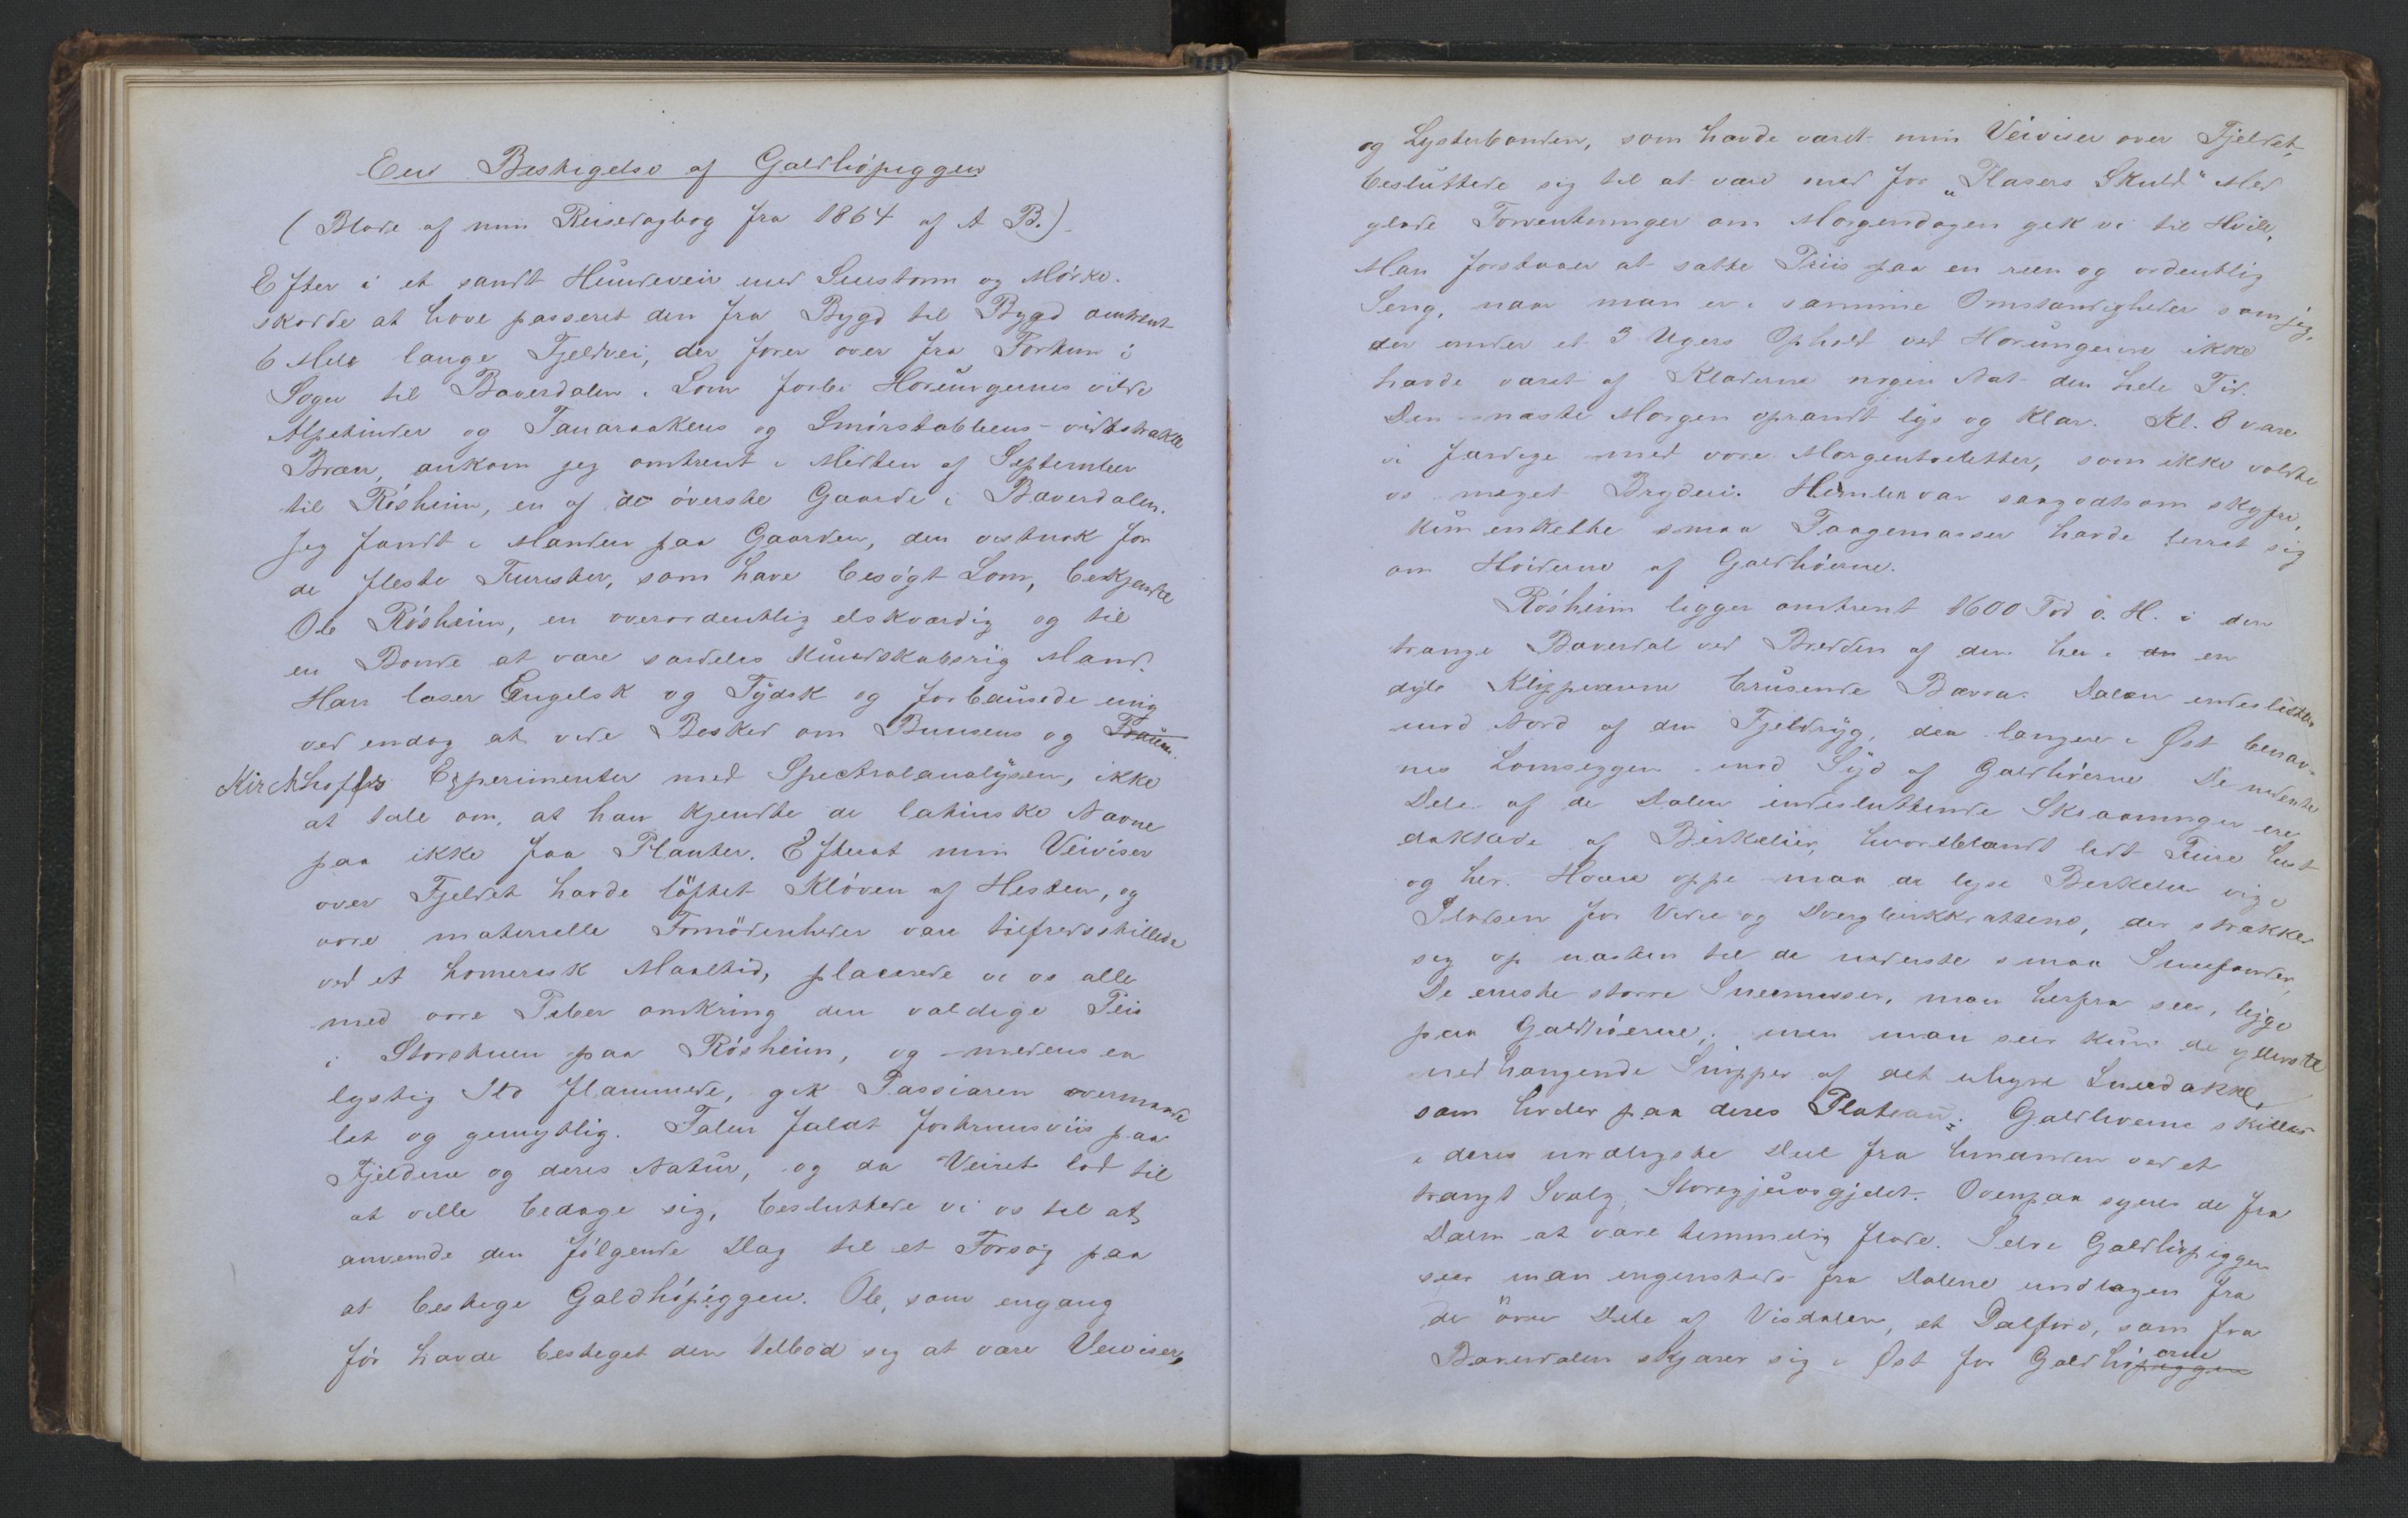 Een Bestigelse af Galdhöpiggen
(Blade af min Reisedagbog fra 1864 af A B.)
Efter i et sandt Hundeveir med Snestorm og Mørke
skodde at have passeret den fra Bygd til Bygd omtrent
6 Mile lange Fjeldvei, der fører over fra Fortun i
Sogn til Bæverdalen i Lom forbi Horungernes vilde
Alpetinder og Fanaraakens og Smørstabbens vidtstrakte
Bræer, ankom jeg omtrent i Midten af September
til Rösheim, en af de överste Gaarde i Bæverdalen.
Jeg fandt i Manden paa Gaarden, den vistnok for
de fleste Turister, som have besögt Lom, bekjendte
Ole Rösheim, en overordentlig elskværdig og til
en Bonde at være særdeles kundskabsrig Mand.
Han læser Engelsk og Tydsk og forbausede mig
ved endog at vide Besked om Bunsens og Fraun
Kirchhoffes Experimenter med Spectralanalysen, ikke
at tale om, at han kjendte de latinske Navne
paa ikke faa Planter. Efterat min Veiviser
over Fjeldet havde löftet Klöven af Hesten, og
vore materielle Fornödenheder vare tilfredsstillede
ved et homerisk Maaltid, placerede vi os alle
med vore Piber omkring den vældige Peis
i Storstuen paa Rösheim, og medens en
lystig Ild flammede, gik Passiaren overmaade
let og gemytlig. Talen faldt fortrinsviis paa
Fjeldene og deres Natur, og da Veiret lod til
at ville bedage sig, besluttede vi os til at
anvende den fölgende Dag til et Forsög paa
at bestige Galdhöpiggen. Ole, som engang
för havde besteget den tilböd sig at være Veiviser,
og Lysterbonden, som havde været min Veiviser over Fjeldet,
besluttede sig til at være med for "Plasers Skuld" Med
glade Forventninger om Morgendagen gik vi til Hvile,
Man forstaaer at sætte Priis paa en reen og ordentlig
Seng, naar man er i samme Omstændigheder som jeg,
der under et 3 Ugers Ophold ved Horungerne ikke
havde været af Klæderne nogen Nat den hele Tid.
Den næste Morgen oprandt lys og klar. Kl. 8 vare
vi færdige med vore Morgentoiletter, som ikke voldte
os meget Bryderi. Himlen var saagodtsom skyfri,
kun enkelte smaa Taagemasser havde leiret sig
om Höiderne af Galdhöerne.
Rösheim ligger omtrent 1600 Fod o. H. i den
trange Bæverdal ved Bredden af den her i en en
dyb Klipperende brusende Bævra. Dalen indesluttes
mod Nord af den Fjeldryg, der længere i Øst benæv-
nes Lomseggen mod Syd af Galdhöerne. De nederste
Dele af de Dalen indesluttende Skraaninger ere
dækkede af Birkelier, hvoriblandt lidt Furu hist
og her. Høiere oppe maa de lyse Birkelier vige
Pladsen for Vidie og Dvergbirkkrattene, der strækker
sig op næsten til de nederste smaa Sneefonder,
De eneste større Sneemasser, man herfra seer, ligge
paa Galdhöerne; men man seer kun de yderste
nedhængende Snipper af det uhyre Sneedække,
som hviler paa deres Plateau. Galdhöerne skilles
i deres nordligste Deel fra hinanden ved et
trangt Svælg, Storegjuvsgjelet. Ovenpaa synes de fra
Dalen at være temmelig flade. Selve Galdhöpiggen
seer man ingensteds fra Dalene undtagen fra
de övre Dele af Visdalen, et Dalføre, som fra
Bæverdalen skjærer sig i Øst for Galdhöpiggen
erne